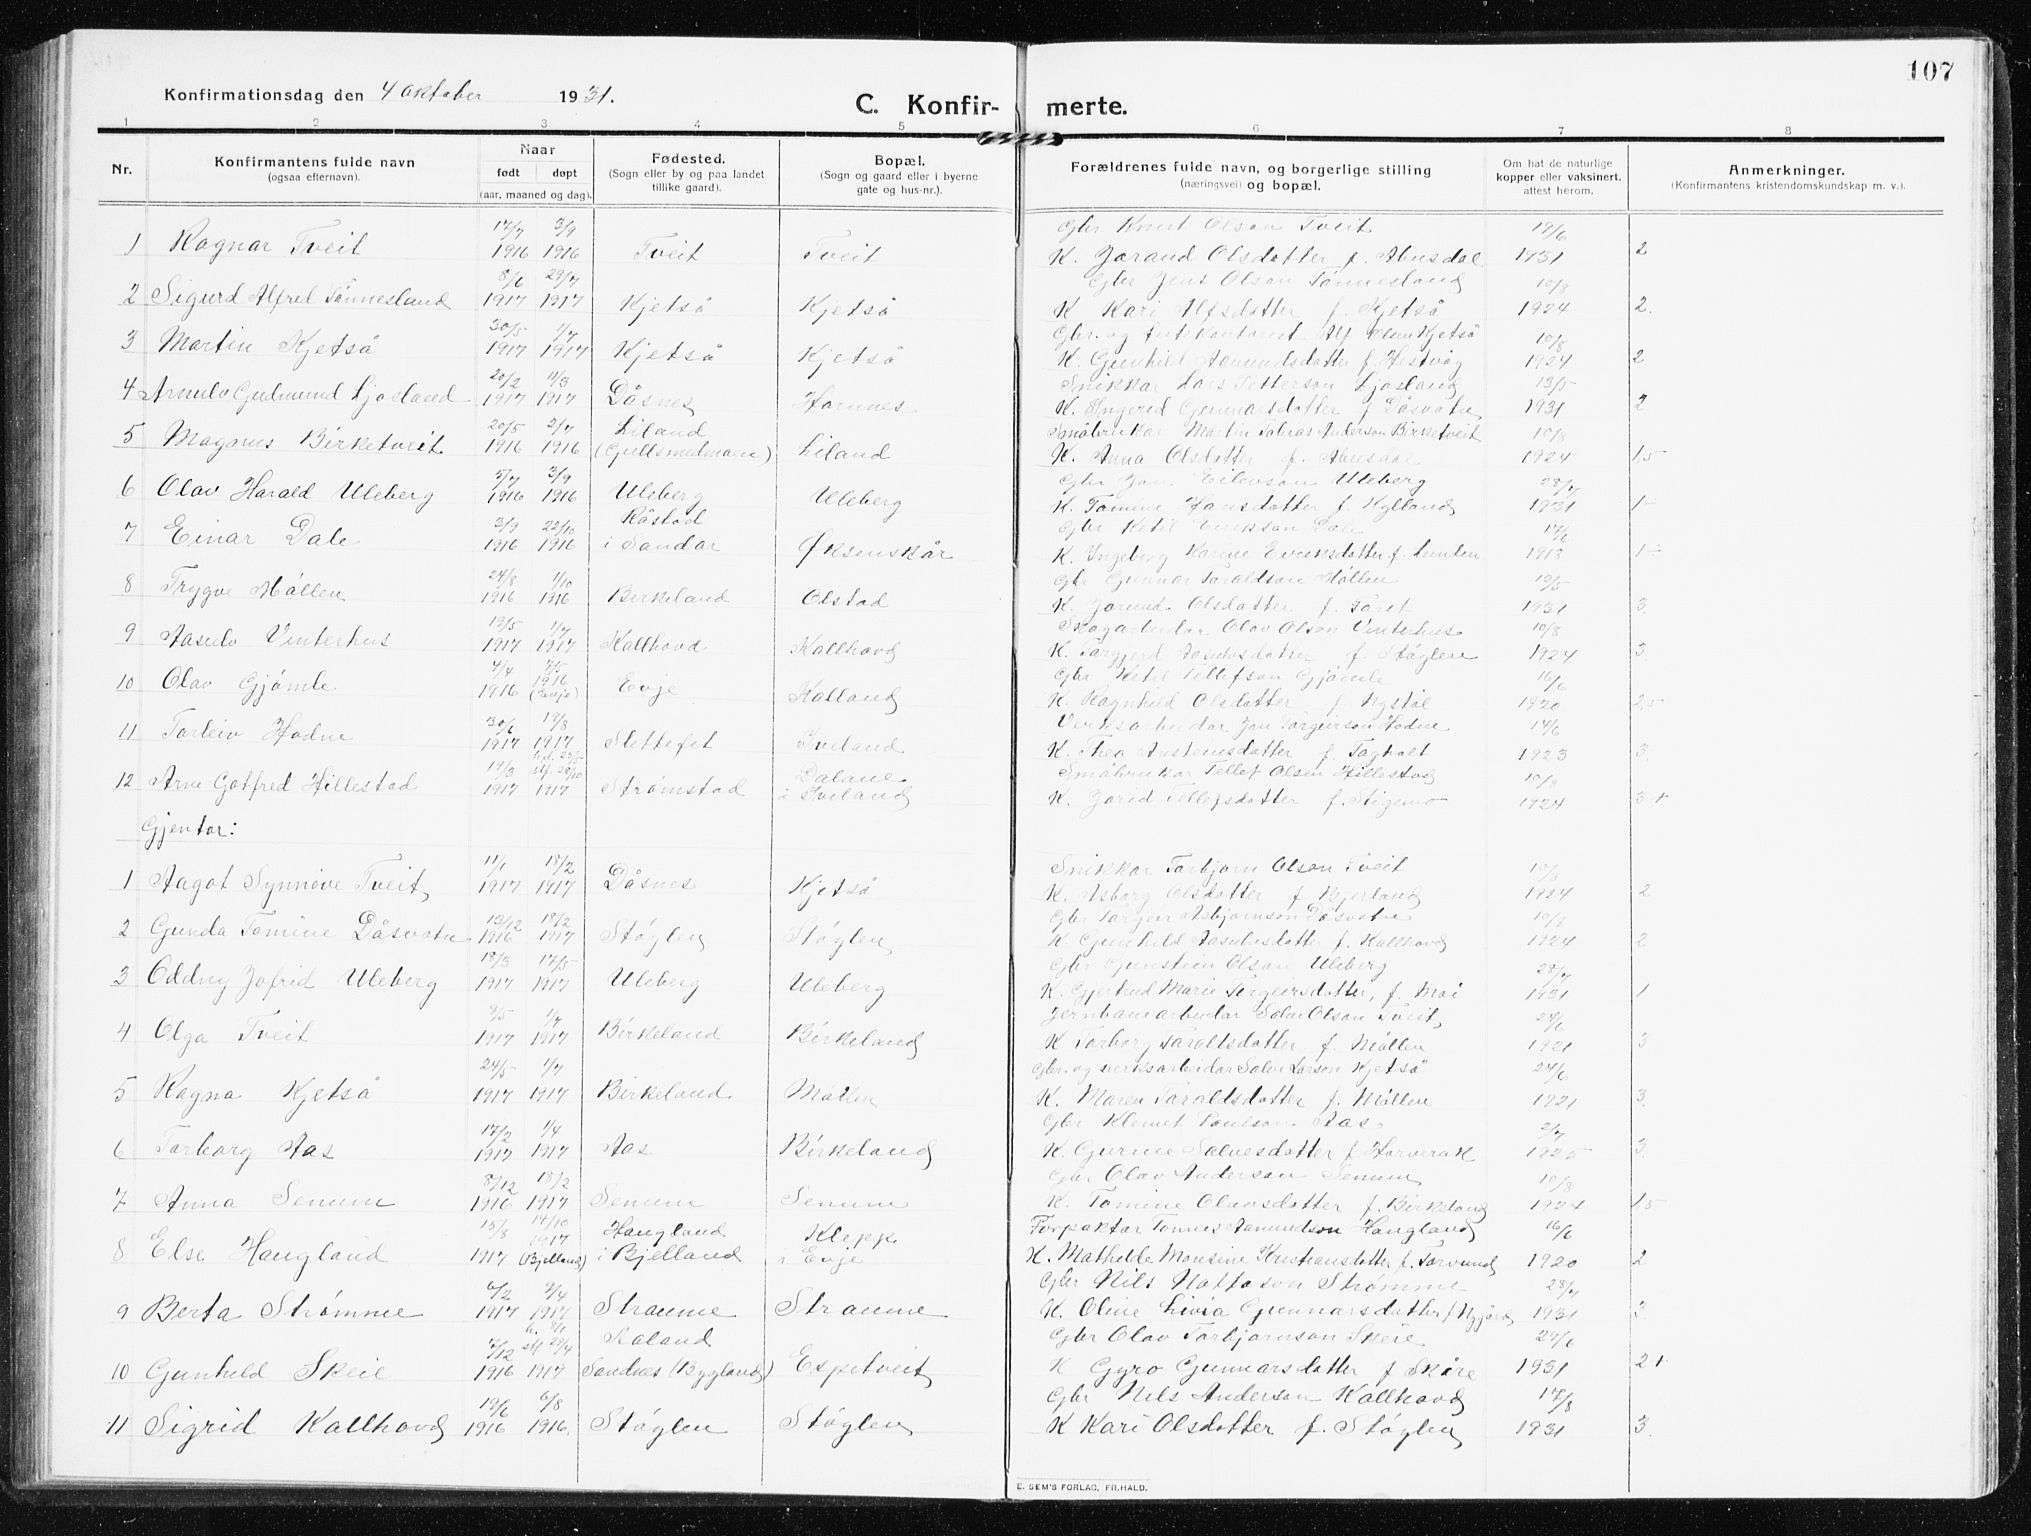 107
Konfirmationsdag den 4 oktober 1931.
C. Konfir- merte.
1 2 3 4 5 6 7 8
Nr. Konfirmantens fulde navn (ogsaa efternavn). Naar født døpt (aar, maaned og dag). Fødested. (Sogn eller by og paa landet tillike gaard). Bopæl. (Sogn og gaard eller i byerne gate og hus-nr.). Forældrenes fulde navn, og borgerlige stilling (næringsvei) og bopæl. Om hat de naturlige kopper eller vaksinert, attest herom. Anmerkninger. (Konfirmantens kristendomskundskap m. v.).
17/7 3/9 Gbr Knut Olson Tveit 19/6
1 Ragnar Tveit 1916 1916 Tveit Tveit K. Jorand Olsdotter f. Abusdal 1931 2
8/6 29/7 Gbr Jens Olson Tønnesland 10/8
2 Sigurd Alfred Tønnesland 1917 1917 Kjetså Kjetså K Kari Alfsdotter f. Kjetså 1924 2.
30/5 1/7 Gbr. og Alf Olsen Kjetså 10/8
3 Martin Kjetså 1917 1917 Kjetså Kjetså K. Gunhild Aamundsdotter f. Hestvåg 1924 2
20/2 11/3 Snikkar Lars Petterson Ljosland 13/5
4 Arnulv Gudmund Ljosland 1917 1917 Dåsnes Hornnes K. Ingerid Gunnarsdotter f. Dåsvatn 1931 2
20/5 2/7 Liland Småbrukar Martin Tobias Anderson Birketveit 10/8
5 Magnus Birketveit 1916 1916 (Gullsmedmoen) Liland K. Anna Olsdotter f. Abusdal 1924 1,5
5/7 3/9 Gbr Jon Eilevson Uleberg 28/7
6 Olav Harald Uleberg 1916 1916 Uleberg Uleberg K. Tomine Hansdotter f. Kylland 1931 1-
3/9 22/10 Råstad Gbr Ketil Eirikson Dale 17/6
7 Einar Dale 1916 1916 i Sandar Øksenskår K. Ingeborg Karine Evensdotter f. Lunden 1918 1÷
24/8 1/10 Gbr Gunnar Taraldson Møllen 12/5
8 Trygve Møllen 1916 1916 Birkeland Olstad K. Jorund Olsdotter f. Faret 1931 3.
19/5 1/7 Skogarbeidar Olav Olson Vinterhus 10/8
9 Aasulv Vinterhus 1917 1917 Kallhovd Kallhovd K. Torgjerd Aasulvsdotter f. Støglen 1924 3
4/4 7/5 Gbr Ketil Tellefson Gjømle 16/6
10 Olav Gjømle 1916 1916 (Evje) Evje Kalland K. Ragnhild Olsdotter f. Nystøl 1920 2,5
30/6 19/8 Verksarbeidar Jon Torgierson Hodne 14/6
11 Torleiv Hodne 1917 1917 Slettefet Iveland K. Thea Austensdotter f. Fagholt 1923 3.
19/3 Dalane Småbrukar Tellef Olsen Hillestad 10/8
12 Arne Gotfred Hillestad 1917 1917 Strømstad i Iveland K. Jorid Tellefsdotter f. Stigemo 1924 3+
Gjentor:
11/1 18/2 Snikkar Torbjørn Olson Tveit 10/8
1 Aagot Synnøve Tveit 1917 1917 Dåsnes Kjetså K. Asborg Olsdotter f. Bjorland 1924 2
13/12 18/2 Gbr Torgeir Asbjørnson Dåsvatn 10/8
2 Gunda Tomine Dåsvatn 1916 1917 Støglen Støglen K. Gunhild Aasulvsdotter f. Kallhovd 1924 2
18/3 17/5 Gbr Gunstein Olson Uleberg 28/7
3 Oddny Jofrid Uleberg 1917 1917 Uleberg Uleberg K. Gjertrud Marie Torgeirsdotter, f. Moi 1931 1
3/5 1/7 Jernbanearbeidar Salve Olson Tveit, 24/6
4 Olga Tveit 1917 1917 Birkeland Birkeland K Torborg Taraldsdotter f. Møllen 1921 3
24/5 1/7 Gbr. og verksarbeidar Salve Larson Kjetså 24/6
5 Ragna Kjetså 1917 1917 Birkeland Møllen K. Maren Taraldsdotter f. Møllen 1921 3.
17/2 1/4 Gbr Klemet Paulson Aas 2/7
6 Torborg Aas 1917 1917 Aas Birkeland K. Gurine Salvesdotter f. Horverak 1925 3.
8/12 18/2 Gbr Olav Anderson Senum 10/8
7 Anna Senum 1916 1917 Senum Senum K. Tomine Olavsdotter f. Birkeland 1924 1,5
15/8 14/10 Haugland Klepp Forpaktar Tønnes Aanundson Haugland 16/6
8 Else Haugland 1917 1917 (Bjelland) i Bjelland i Evje K. Mathilde Monsine Kristiansdotter f. Torvund 1920 2
6/2 9/4 Gbr Nils Strømme 28/7
9 Berta Strømme 1917 1917 Straume Straume K. Oline Livia Gunnarsdotter f Nygård 1931 3.
7/12 h. 8/1 stf 29/4 Gbr Olav Torbjørnson Skeie 29/6
10 Gunhild Skeie 1916 1917 Sandnes (Bygland) Espetveit K Gyro Gunnarsdotter f Skåre 1931 2+
19/6 6/8 Gbr Nils Anderson Kallhovd 17/8
11 Sigrid Kallhovd 1916 1916. Støglen Støglen K Kari Olsdotter f. Støglen 1931 3.
E. SEM'S FORLAG, FR.HALD.